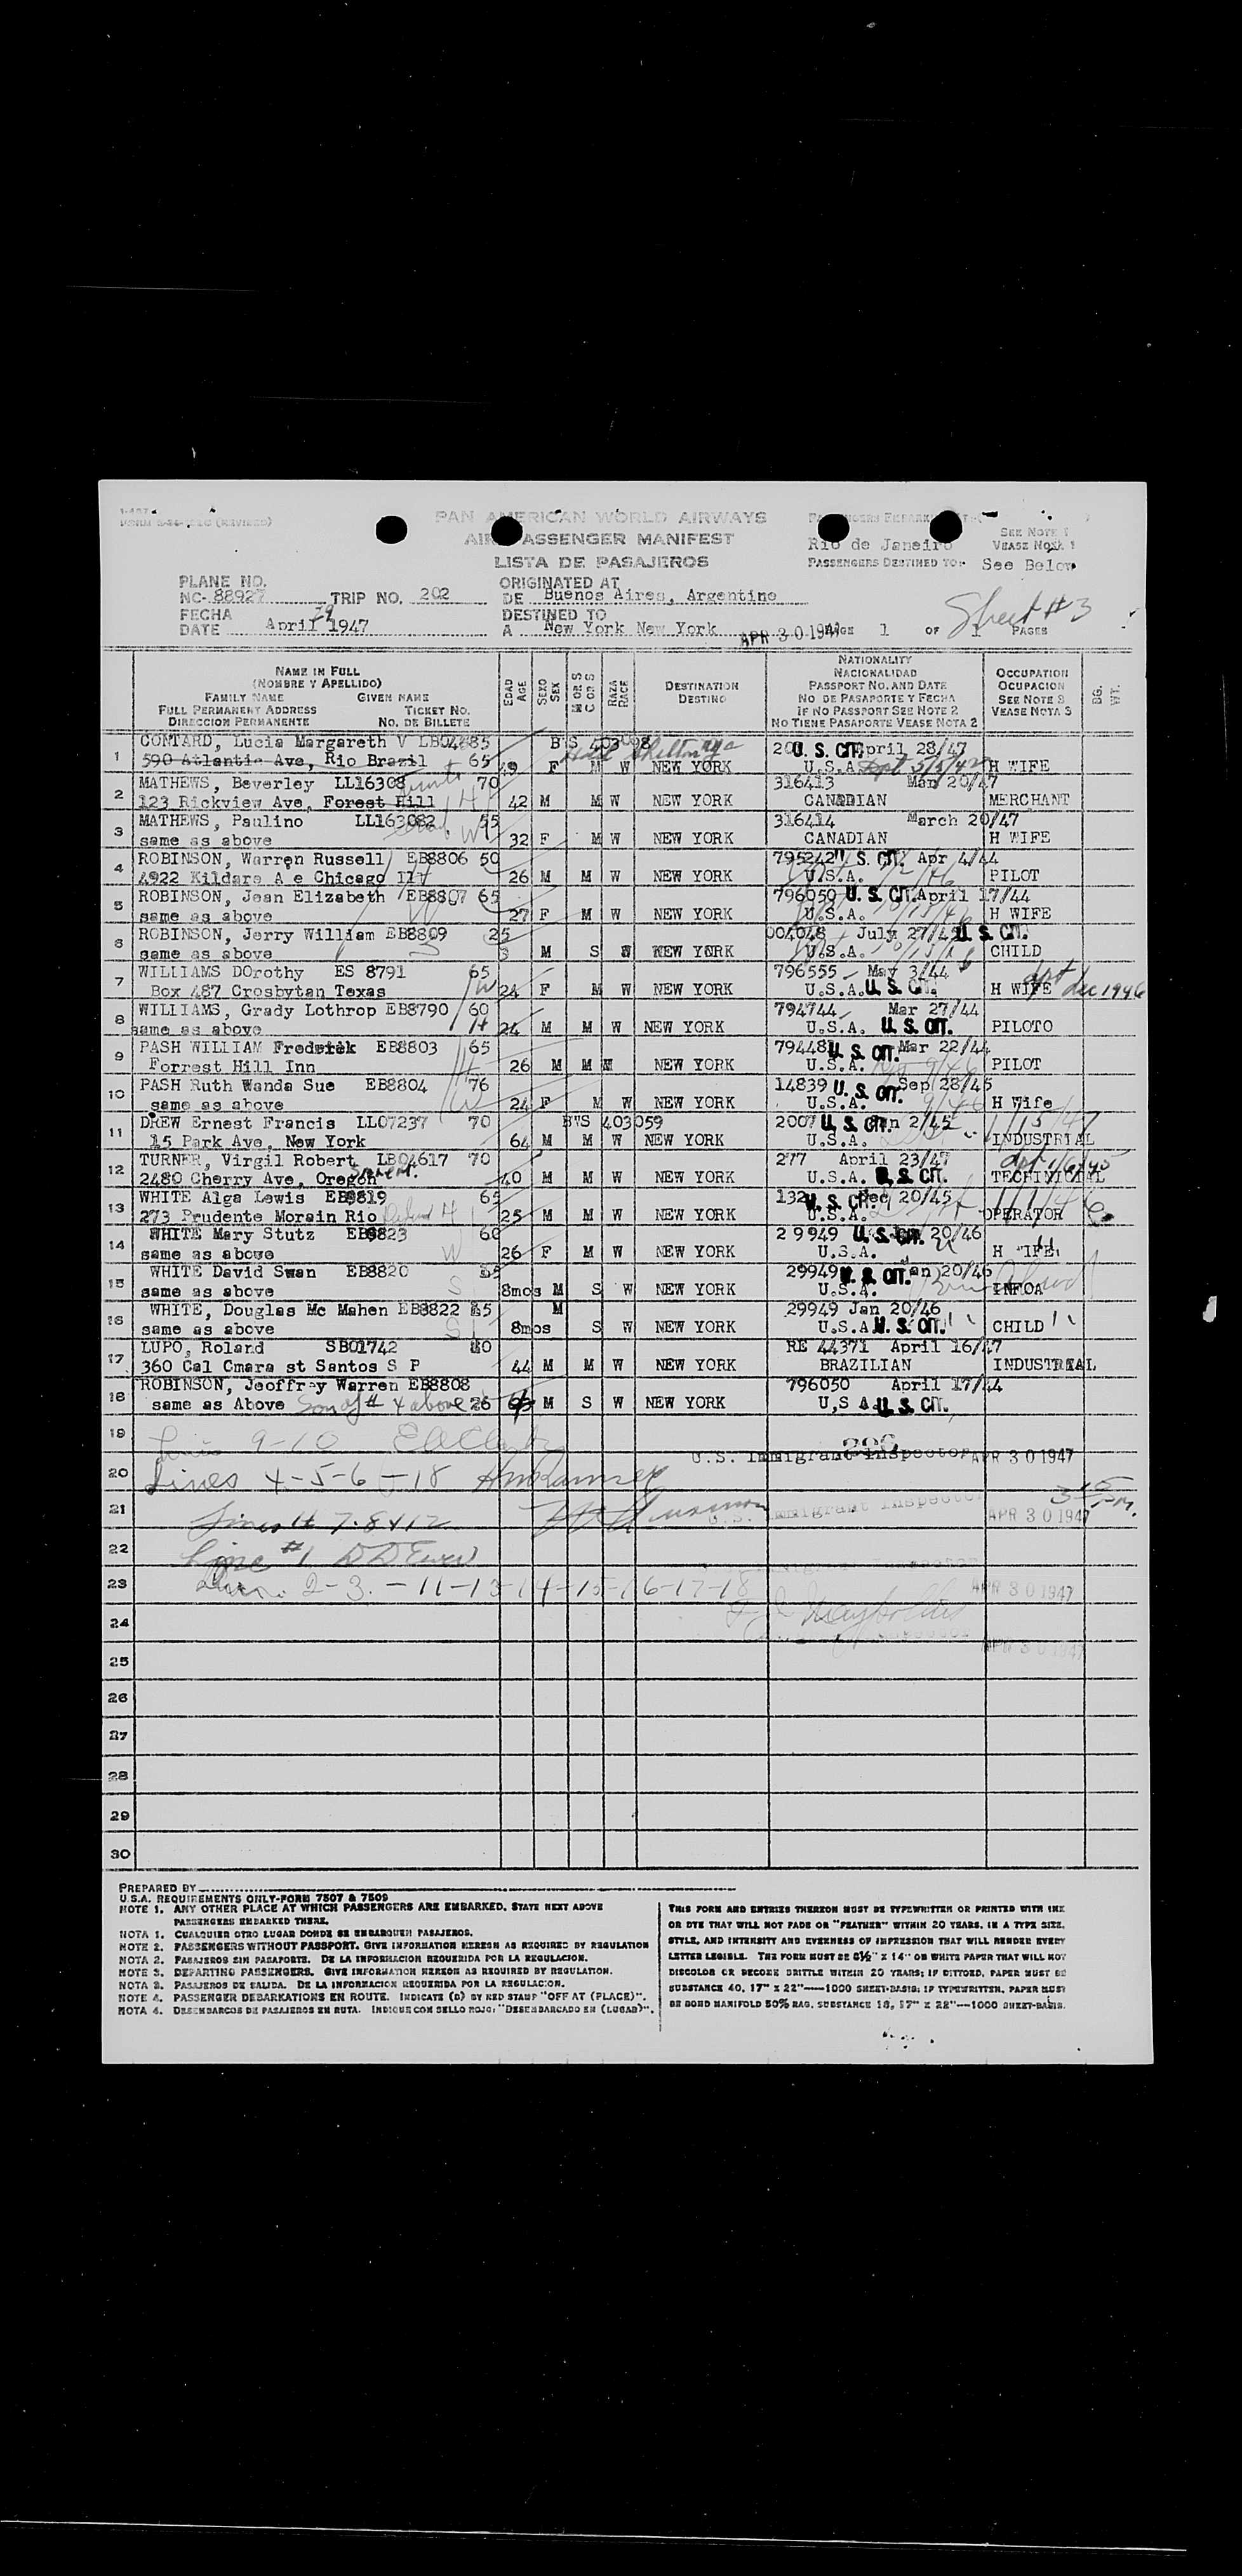 PAN AMERICAN WORLD AIRWAYS
AIR PASSENGER MANIFEST
LISTA DE PASAJEROS
PASSENGERS EMBARKED AT
Rio de Janeiro
SEE NOTE 1
VEASE NOTA 1
PASSENGERS DESTINED TO See Below
PLANE NO.
NC- 88927 TRIP NO. 202
ORIGINATED AT
DE Buenos Aires, Argentina
FECHA
DATE April 29 1947
DESTINED TO
A New York New York
APR 30 1947
PAGE 1 OF 1 PAGES
Sheet #3
NAME IN FULL
(NOMBRE Y APELLIDO)
FAMILY NAME GIVEN NAME
FULL PERMANENT ADDRESS TICKET NO.
DIRECCION PERMANENTE NO. DE BILLETE
EDAD AGE
SEXO SEX
M OR S
C OR S
RAZA RACE
DESTINATION
DESTINO
NATIONALITY
NACIONALIDAD
PASSPORT NO. AND DATE
NO. DE PASAPORTE Y FECHA
IF NO PASSPORT SEE NOTE 2
NO TIENE PASAPORTE VEASE NOTA 2
OCCUPATION
OCUPACION
SEE NOTE 3
VEASE NOTA 3
BG. WT.
1 CONTARD, Lucia Margareth V B'S U. S. CIT. April 28/47
590 Atlantic Ave, Rio Brazil 65 49 F M W NEW YORK U.S.A. H WIFE
2 MATHEWS, Beverley LL16308 70 316413 Mar 20/47
123 Rickview Ave, Forest Hill 42 M M W NEW YORK CANADIAN MERCHANT
3 MATHEWS, Paulino LL163082 55 316414 March 20/47
same as above 32 F M W NEW YORK CANADIAN H WIFE
4 ROBINSON, Warren Russell EB8806 50 795242 U. S. CIT. Apr 4/44
4922 Kildare A e Chicago Ill 26 M M W NEW YORK U.S.A. PILOT
5 ROBINSON, Jean Elizabeth EB8807 65 796050 U. S. CIT. April 17/44
same as above 27 F M W NEW YORK U.S.A. H WIFE
6 ROBINSON, Jerry William EB8809 25 004048 July 27/45 U. S. CIT.
same as above 3 M S W NEW YORK U.S.A. CHILD
7 WILLIAMS DOrothy ES 8791 65 796555 May 3/44
Box 487 Crosbytan Texas 24 F M W NEW YORK U.S.A. U. S. CIT. H WIFE dec 1946
8 WILLIAMS, Grady Lothrop EB8790 60 794744 Mar 27/44
same as above 24 M M W NEW YORK U.S.A. U. S. CIT. PILOTO
9 PASH WILLIAM Fredrick EB8803 65 79448 U. S. CIT. Mar 22/44
Forrest Hill Inn 26 M M W NEW YORK U.S.A. PILOT
10 PASH Ruth Wanda Sue EB8804 76 14839 U. S. CIT. Sep 28/45
same as above 24 F M W NEW YORK U.S.A. H Wife
11 DREW Ernest Francis LL07237 70 B'S 403059 2007 U. S. CIT. 2/45
15 Park Ave, New York 64 M M W NEW YORK U.S.A. INDUSTRIAL
12 TURNER, Virgil Robert LB04617 70 277 April 23/47
2480 Cherry Ave, Oregon 40 M M W NEW YORK U.S.A. U. S. CIT.
13 WHITE Alga Lewis EB8819 65 132 U. S. CIT. Dec 20/45
273 Prudente Morain Rio 25 M M W NEW YORK U.S.A. OPERATOR
14 WHITE Mary Stutz EB8823 60 29949 U. S. CIT. 20/46
same as above 26 F M W NEW YORK U.S.A. H WIFE
15 WHITE David Swan EB8820 29949 U. S. CIT. Jan 20/46
same as above 8mos M S W NEW YORK U.S.A.
16 WHITE, Douglas Mc Mahen EB8822 M 29949 Jan 20/46
same as above 8mos S W NEW YORK U.S.A U. S. CIT. CHILD
17 LUPO, Roland SB01742 RE 44371 April 16/47
360 Cal Cmara st Santos S P 44 M M W NEW YORK BRAZILIAN INDUSTRIAL
18 ROBINSON, Jeoffray Warren EB8808 796050 April 17/44
same as Above Son of #4 above 26 M S W NEW YORK U,S A U. S. CIT.
19 Lines 9-10
U.S. Immigrant Inspector APR 30 1947
20 Lines 4-5-6-18
21 Lines # 7-8 & 12 APR 30 1947
22 Line #1
23 2-3-11-13-14-15-16-17-18 APR 30 1947
24
APR 30 1947
25
26
27
28
29
30
PREPARED BY
U.S.A. REQUIREMENTS ONLY-FORM 7507 & 7509
NOTE 1. ANY OTHER PLACE AT WHICH PASSENGERS ARE EMBARKED, STATE NEXT ABOVE
PASSENGERS EMBARKED THERE.
NOTA 1. CUALQUIER OTRO LUGAR DONDE SE EMBARQUEN PASAJEROS.
NOTE 2. PASSENGERS WITHOUT PASSPORT. GIVE INFORMATION HEREON AS REQUIRED BY REGULATION
NOTA 2. PASAJEROS SIN PASAPORTE. DE LA INFORMACION REQUERIDA POR LA REGULACION.
NOTE 3. DEPARTING PASSENGERS. GIVE INFORMATION HEREON AS REQUIRED BY REGULATION.
NOTA 3. PASAJEROS DE SALIDA. DE LA INFORMACION REQUERIDA POR LA REGULACION.
NOTE 4. PASSENGER DEBARKATIONS EN ROUTE. INDICATE (D) BY RED STAMP "OFF AT (PLACE)".
NOTA 4. DESEMBARCOS DE PASAJEROS EN RUTA. INDIQUE CON SELLO ROJO: "DESEMBARCADO EN (LUGAR)".
THIS FORM AND ENTRIES THEREON MUST BE TYPEWRITTEN OR PRINTED WITH INK
OR DYE THAT WILL NOT FADE OR "FEATHER" WITHIN 20 YEARS, IN A TYPE SIZE,
STYLE, AND INTENSITY AND EVENNESS OF IMPRESSION THAT WILL RENDER EVERY
LETTER LEGIBLE. THE FORM MUST BE 8½" X 14" ON WHITE PAPER THAT WILL NOT
DISCOLOR OR BECOME BRITTLE WITHIN 20 YEARS; IF DITTOED, PAPER MUST BE
SUBSTANCE 40, 17" X 22"—1000 SHEET-BASIS; IF TYPEWRITTEN, PAPER MUST
BE BOND MANIFOLD 50% RAG, SUBSTANCE 18, 17" X 22"—1000 SHEET-BASIS.